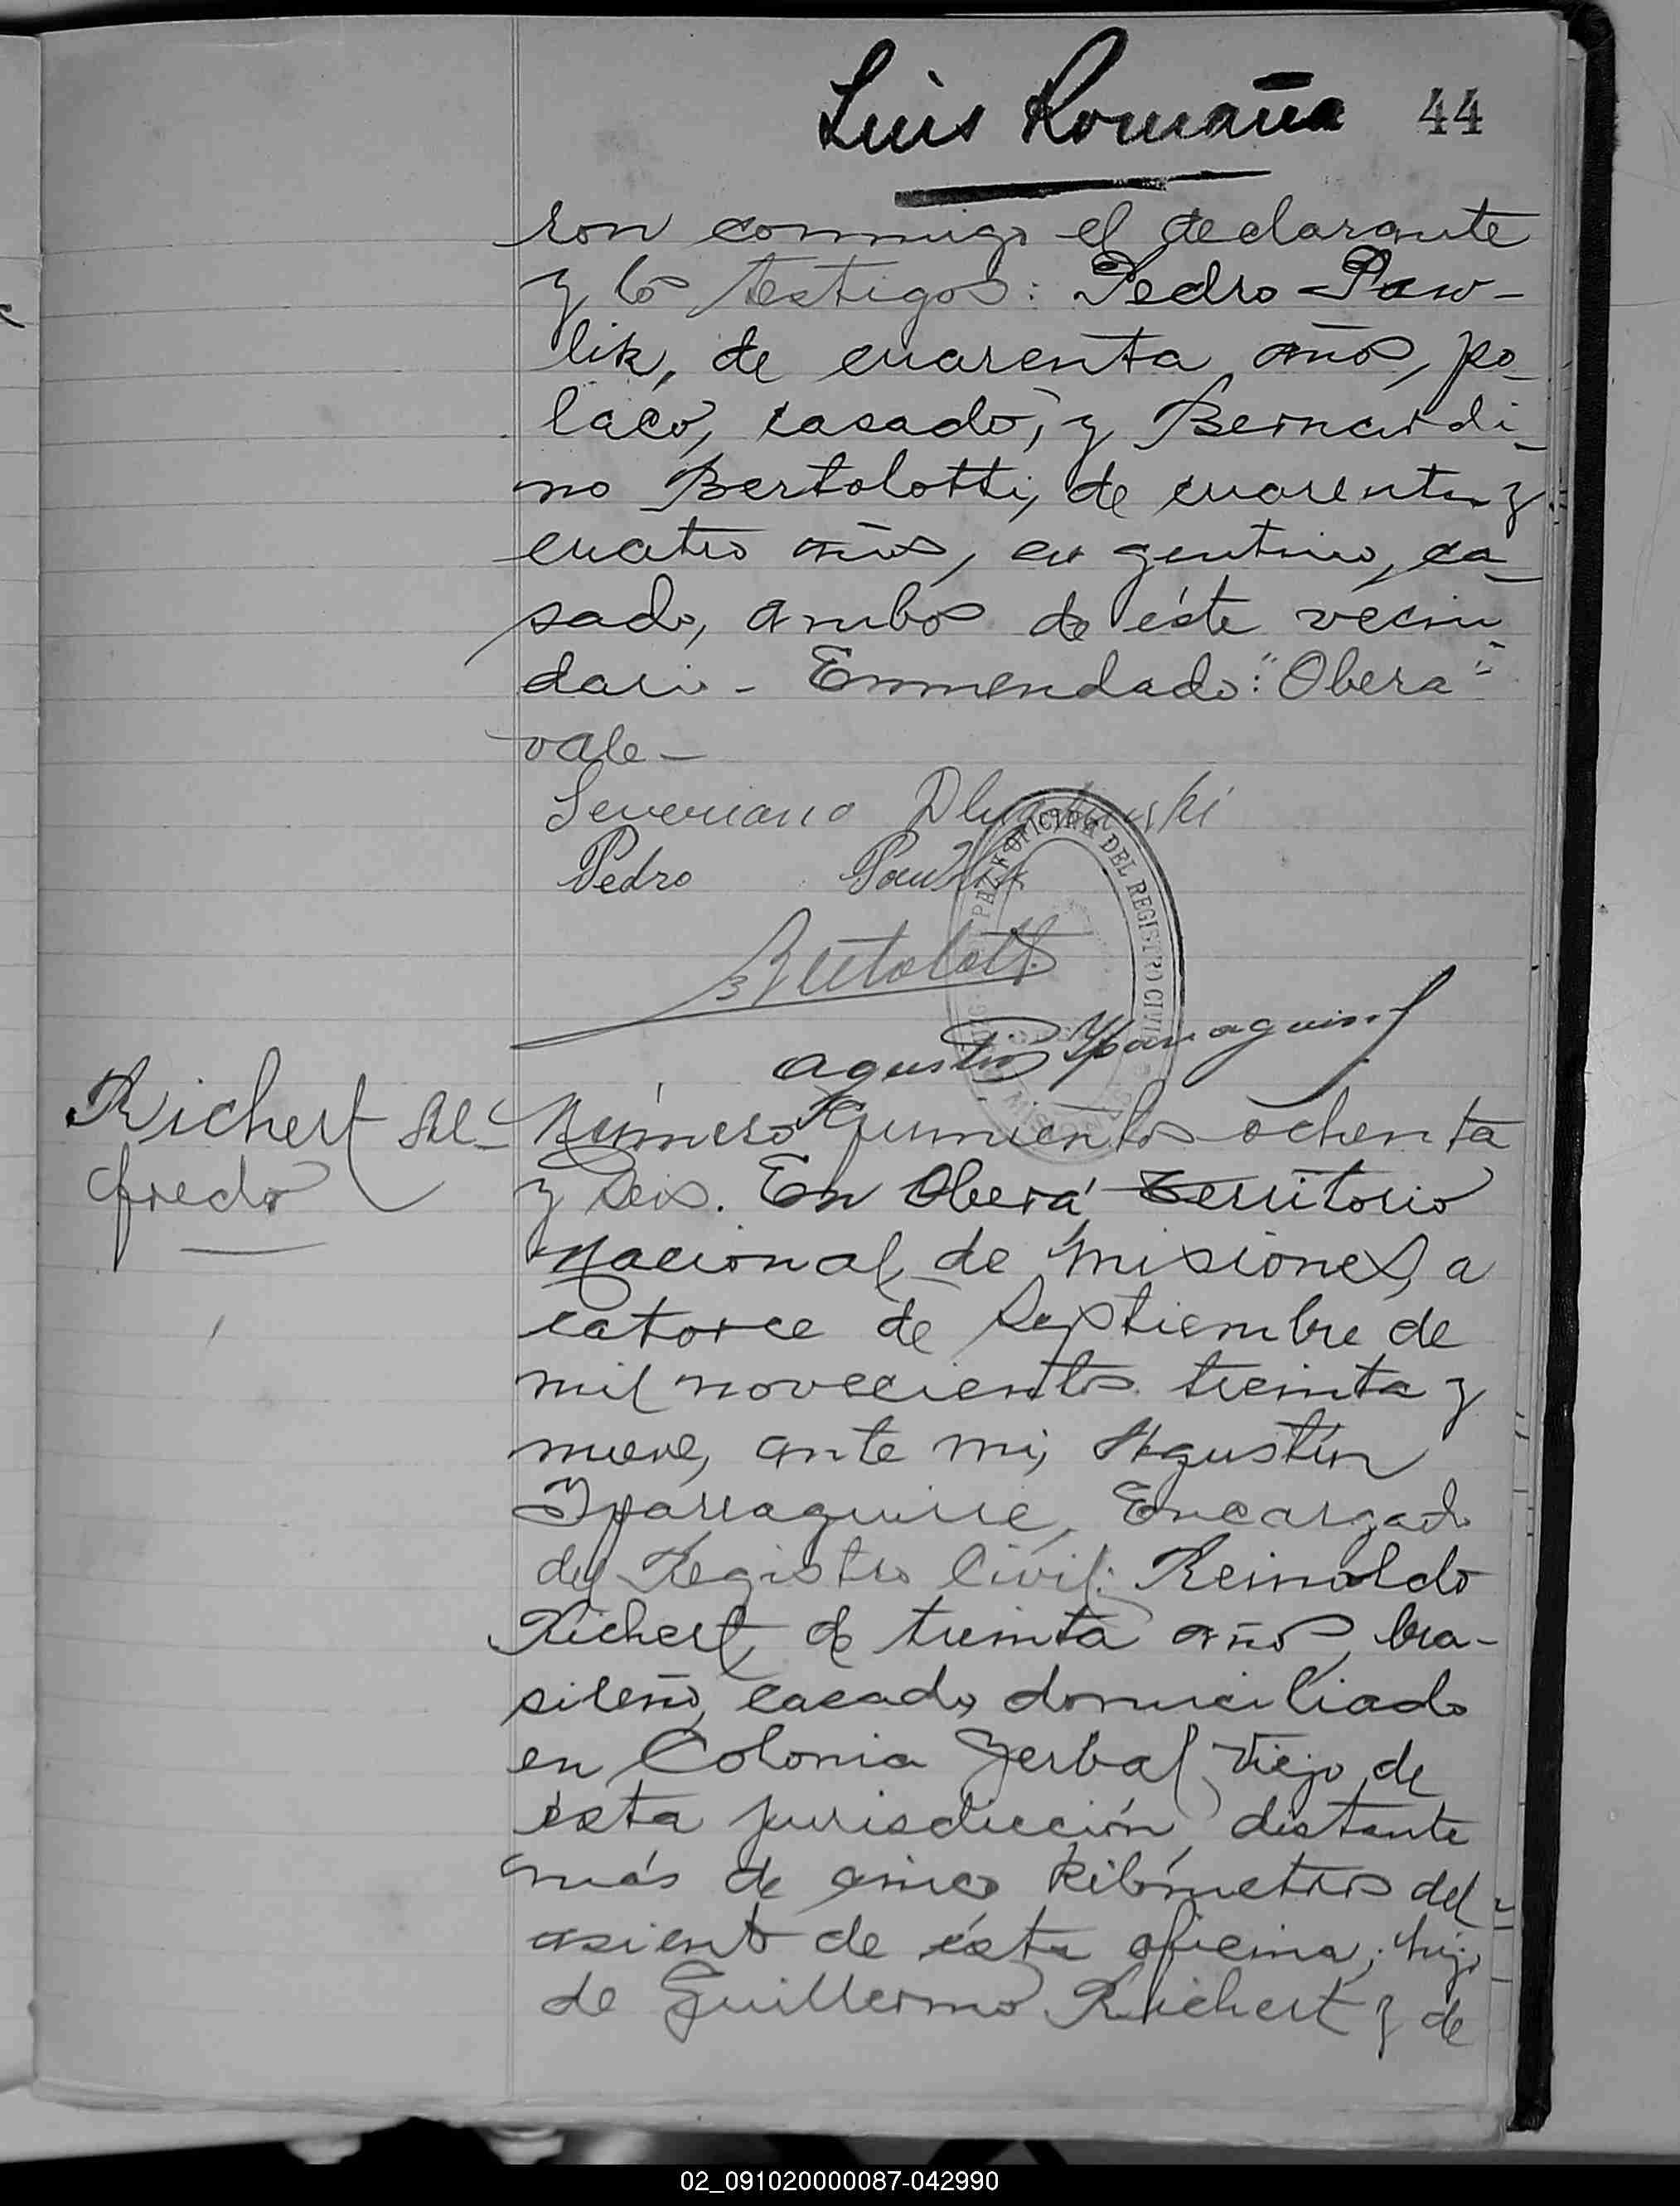 Luis Romaña 44
ron conmigo el declarante
y los testigos: Pedro Paw-
lik, de cuarenta años, po-
laco, casado, y Bernardi-
no Bertolotti, de cuarenta y
cuatro años, argentino, ca-
sado, ambos de éste vecin-
dario - Enmendado: "Obera"
vale -
Severiano
Pedro Pawlik
Bertolotti
OFICINA DEL REGISTRO CIVIL
MISIONES
Agustin Yparraguirre
Richert Al-
fredo
Número quinientos ochenta
y seis. En Oberá, Territorio
Nacional de Misiones, a
catorce de Septiembre de
mil novecientos treinta y
nueve, ante mi, Agustín
Yparraguirre, Encargado
del Registro Civil: Reinaldo
Richert, de treinta años, bra-
sileño, casado, domiciliado
en Colonia Yerbal Viejo de
ésta jurisdicción, distante
más de cinco kilómetros del
asiento de ésta oficina; hijo
de Guillermo Richert y de
02_091020000087-042990